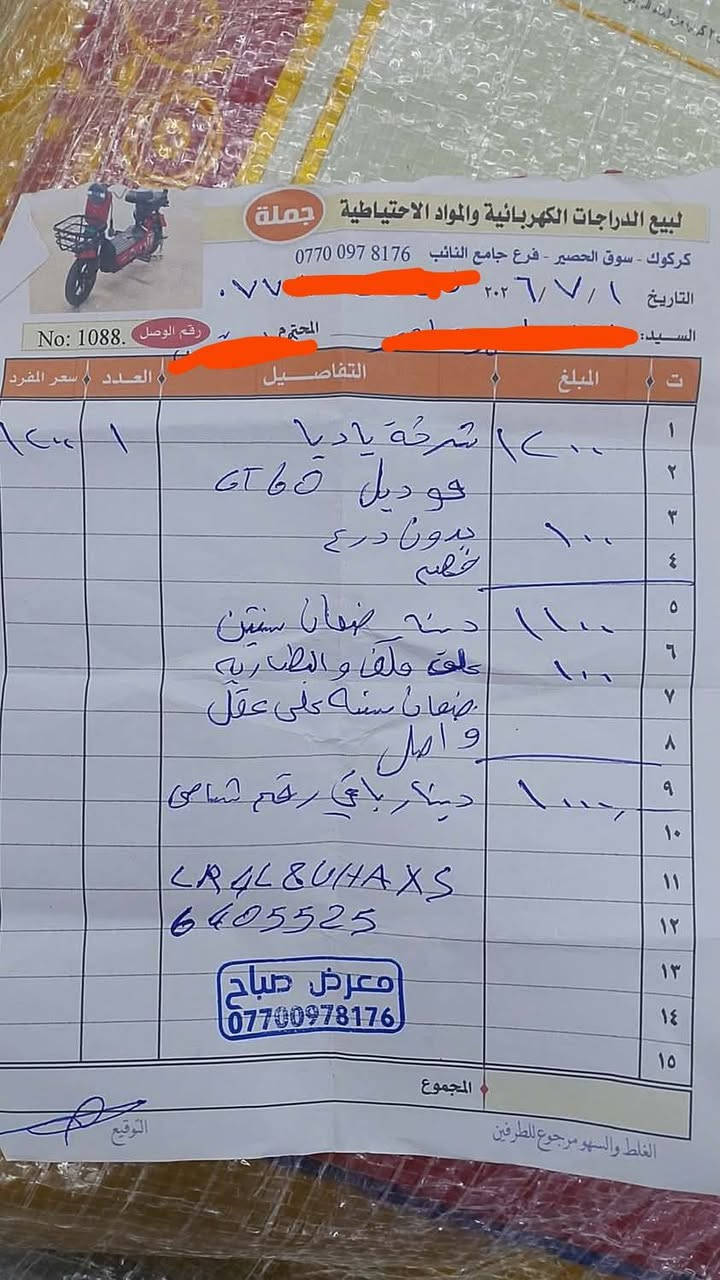 لبيع الدراجات الكهربائية والمواد الاحتياطية جملة
كركوك - سوق الحصير - فرع جامع النائب 0770 097 8176
التاريخ ٢٠٢٦/٧/١ ٠٧٧
السيد: المحترم
رقم الوصل No: 1088.
ت المبلغ التفاصيل العدد سعر المفرد
١ ١٢٠٠ شركة ياديا ١ ١٢٠٠
٢ موديل GT60
٣ ١٠٠ بدون درع
٤ خصم
٥ ١١٠٠ سنتين ضمان
٦ ١٠٠ والبطارية
٧ ضمان سنه على عقل
٨ واصل
٩ ١٠٠٠ دينار باقي رقم شاصي
١٠
١١ LR4L8UHAXS
١٢ 6405525
١٣
معرض صباح
07700978176
١٤
١٥
المجموع
التوقيع
الغلط والسهو مرجوع للطرفين